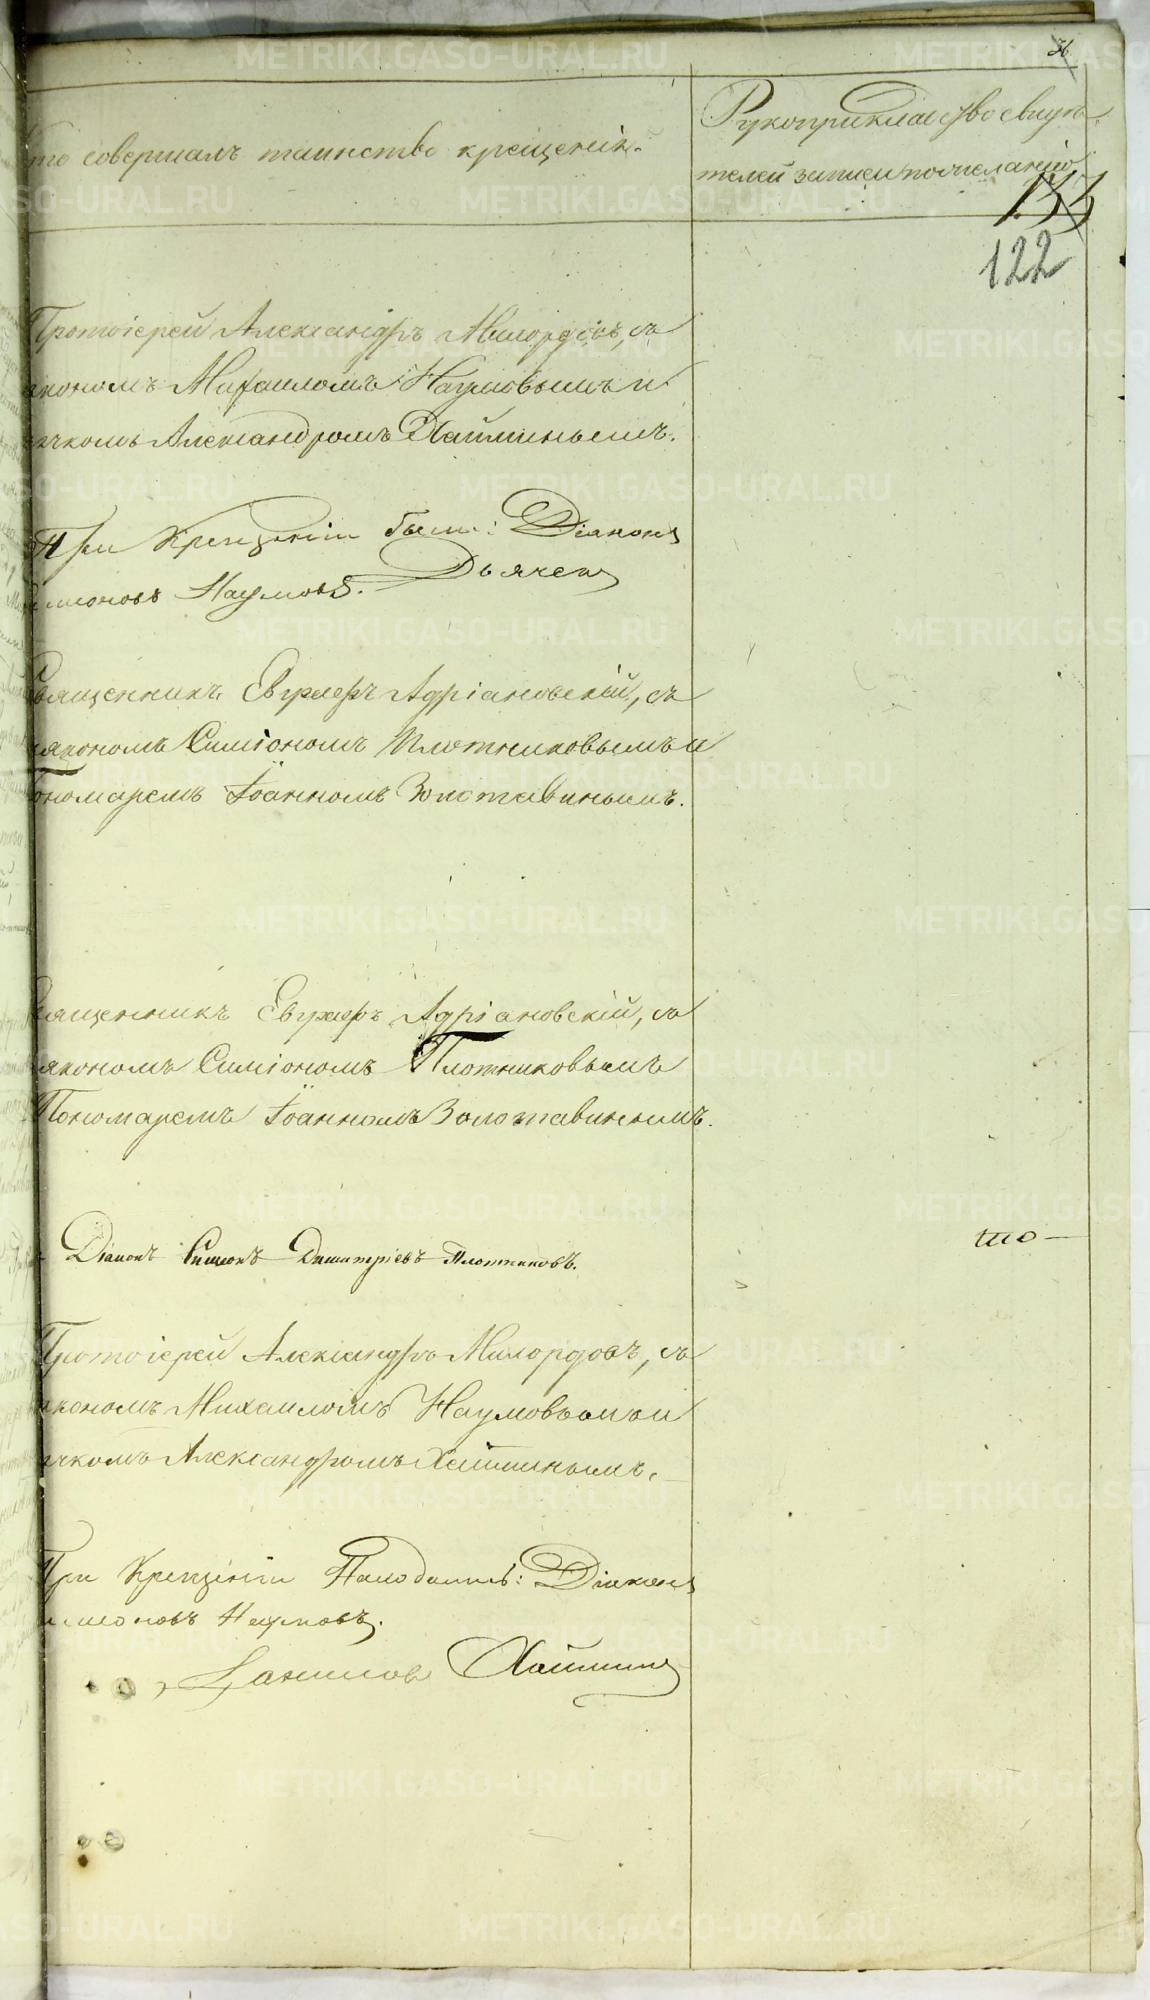 31
то совершалъ таинство крещенія.
Рукоприкладство свидѣ-
телей записи по желанію
133
122
Протоіерей Александръ Милордовъ, съ
акономъ Михаиломъ Наумовымъ и
ячкомъ Александромъ Хайминымъ.
При Крещеніи были: Діаконъ
Наумовъ. Дьячекъ
Священникъ Евграфъ Адріановскій, съ
іякономъ Симіономъ Плотниковымъ и
Пономаремъ Іоанномъ Золотавинымъ.
вященникъ Евграфъ Адріановскій, съ
іякономъ Симіономъ Плотниковымъ
Пономаремъ Іоанномъ Золотавинымъ.
Діаконъ Симіонъ Димитріевъ Плотниковъ.
Протоіерей Александръ Милордовъ, съ
акономъ Михаиломъ Наумовымъ и
ячкомъ Александромъ Хайминымъ.
При Крещеніи Находились: Діаконъ
Наумовъ.
Хайминъ